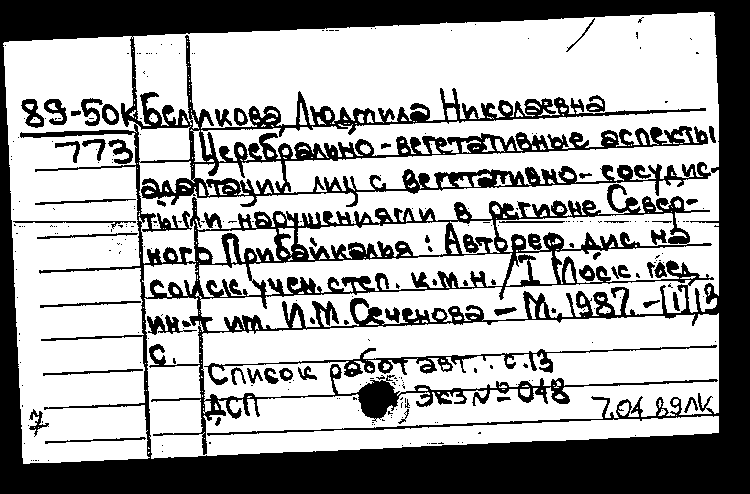 89-50к Беликова, Людмила Николаевна
773 Церебрально-вегетативные аспекты
адаптации лиц с вегетативно-сосудис-
тыми нарушениями в регионе Север-
ного Прибайкалья : Автореф. дис. на
соиск. учен. степ. к.м.н. / I Моск. мед.
ин-т им. И.М. Сеченова. – М., 1987. – [1], 13
с.
Список работ авт.: с. 13
ДСП Экз № 048
7 7.04 89 ЛК